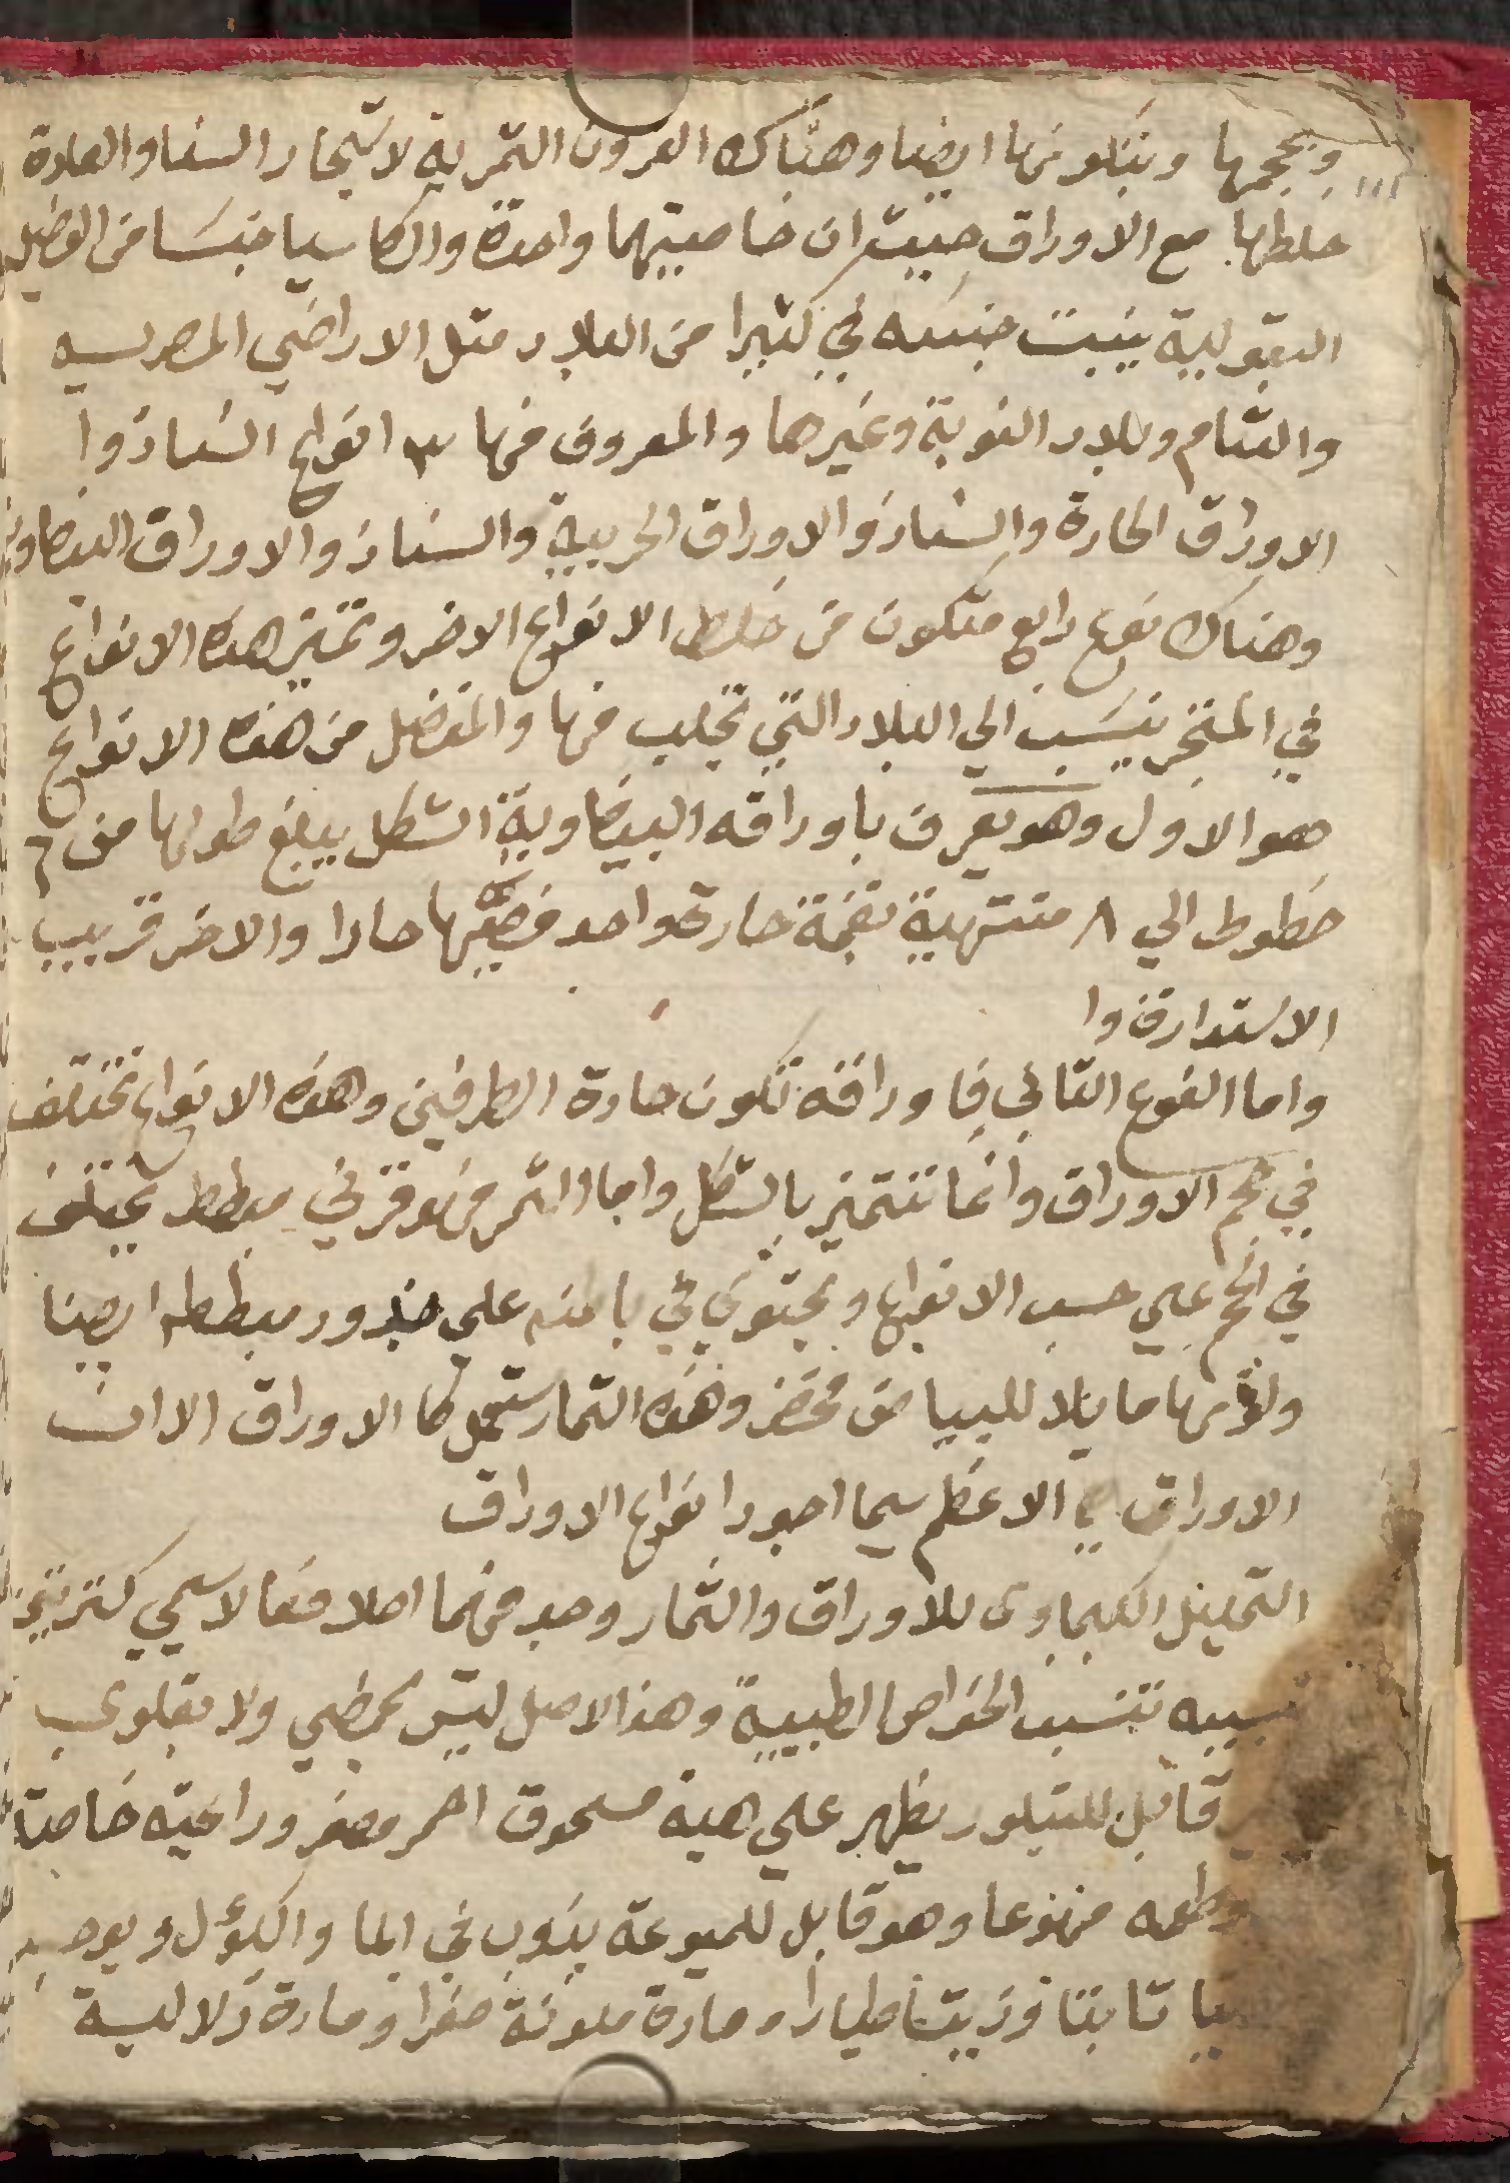 وبحجمها وبتكونها ايضا وهناك القرون التمرية لاشجار السنا والعادة
خلطها مع الاوراق حيث ان خاصيتهما واحدة والكاسيا جنسا من الفصيله
البقولية ينبت جنسه في كثيرا من البلاد مثل الاراضي المصريه
والشام وبلاد النوبة وغيرها والمعروف منها ٣ انواع السنا ذوا
الاوراق الحادة والسنا ذو الاوراق الحربية والسنا ذو الاوراق البيضاويه
وهناك نوع رابع متكون من خلط الانواع الاخر وتميز هذه الانواع
في المتجر ينسب الي البلاد التي تجلب منها والمفضل من هذه الانواع
هو الاول وهو يعرف باوراقه البيضاوية الشكل يبلغ طولها من ٦
خطوط الي ٨ منتهية بقمة حادة واحد فصيها حادا والاخر قريب
الاستدارة وا
واما النوع الثاني فاوراقه تكون حادة الطرفين وهذه الانواع تختلف
في حجم الاوراق وانما تتميز بالشكل واما الثمر فهو قرني مبطط يختلف
في الحجم علي حسب الانواع ويحتوي في باطنه علي بذور مبططه ايضا
ولونها مايلا للبياض مخضر وهذه الثمار تستعمل كالاوراق الا ان
الاوراق هي الاعظم سيما اجود انواع الاوراق
التحليل الكيماوى للاوراق والثمار وجد فيهما اصلا فعالا سمي كترتين
نسبه تنسب الخواص الطبية وهذا الاصل ليس بحمضي ولا بقلوي
قابل للتبلور يظهر علي هيئة مسحوق احمر مصفر ورائحته خاصتا
وطعمه منهوعا وهو قابل للميوعة يذوب في الما والكؤل ويوجد
تابتا وزيتا طيارا ومادة ملونة صفرا ومادة زلالية